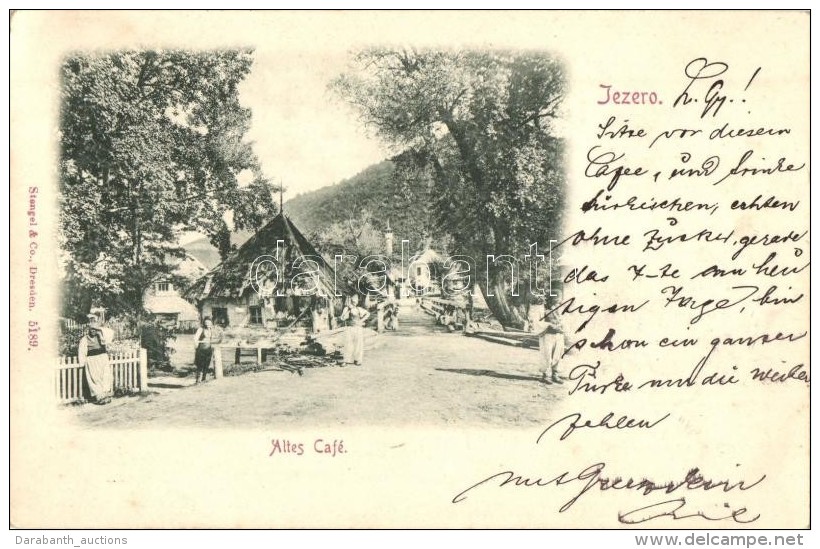 Jezero.
L. Gy.!
Sitze vor diesem
Cafee, und trinke
türkischen, echten
ohne Zucker, gerade
das 4-te am heu
tigen Tage, bin
schon ein ganzer
Türke nur die Weiber
fehlen
mit
Altes Café.
Stengel & Co., Dresden. 5189.
darabanth
Darabanth_auctions
www.delcampe.net